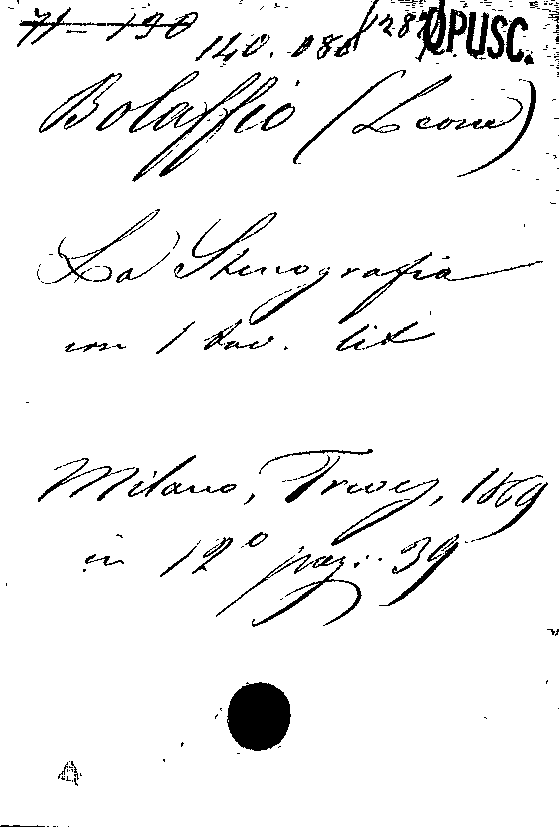 71-190
140.080 OPUSC.
Bolaffio (Leone)
La Stenografia
con 1 tav. lit
Milano, Treves, 1869
in 12º pag: 39